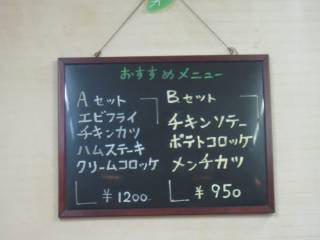 おすすめメニュー
Aセット
エビフライ
チキンカツ
ハムステーキ
クリームコロッケ
¥1200
Bセット
チキンソテー
ポテトコロッケ
メンチカツ
¥950